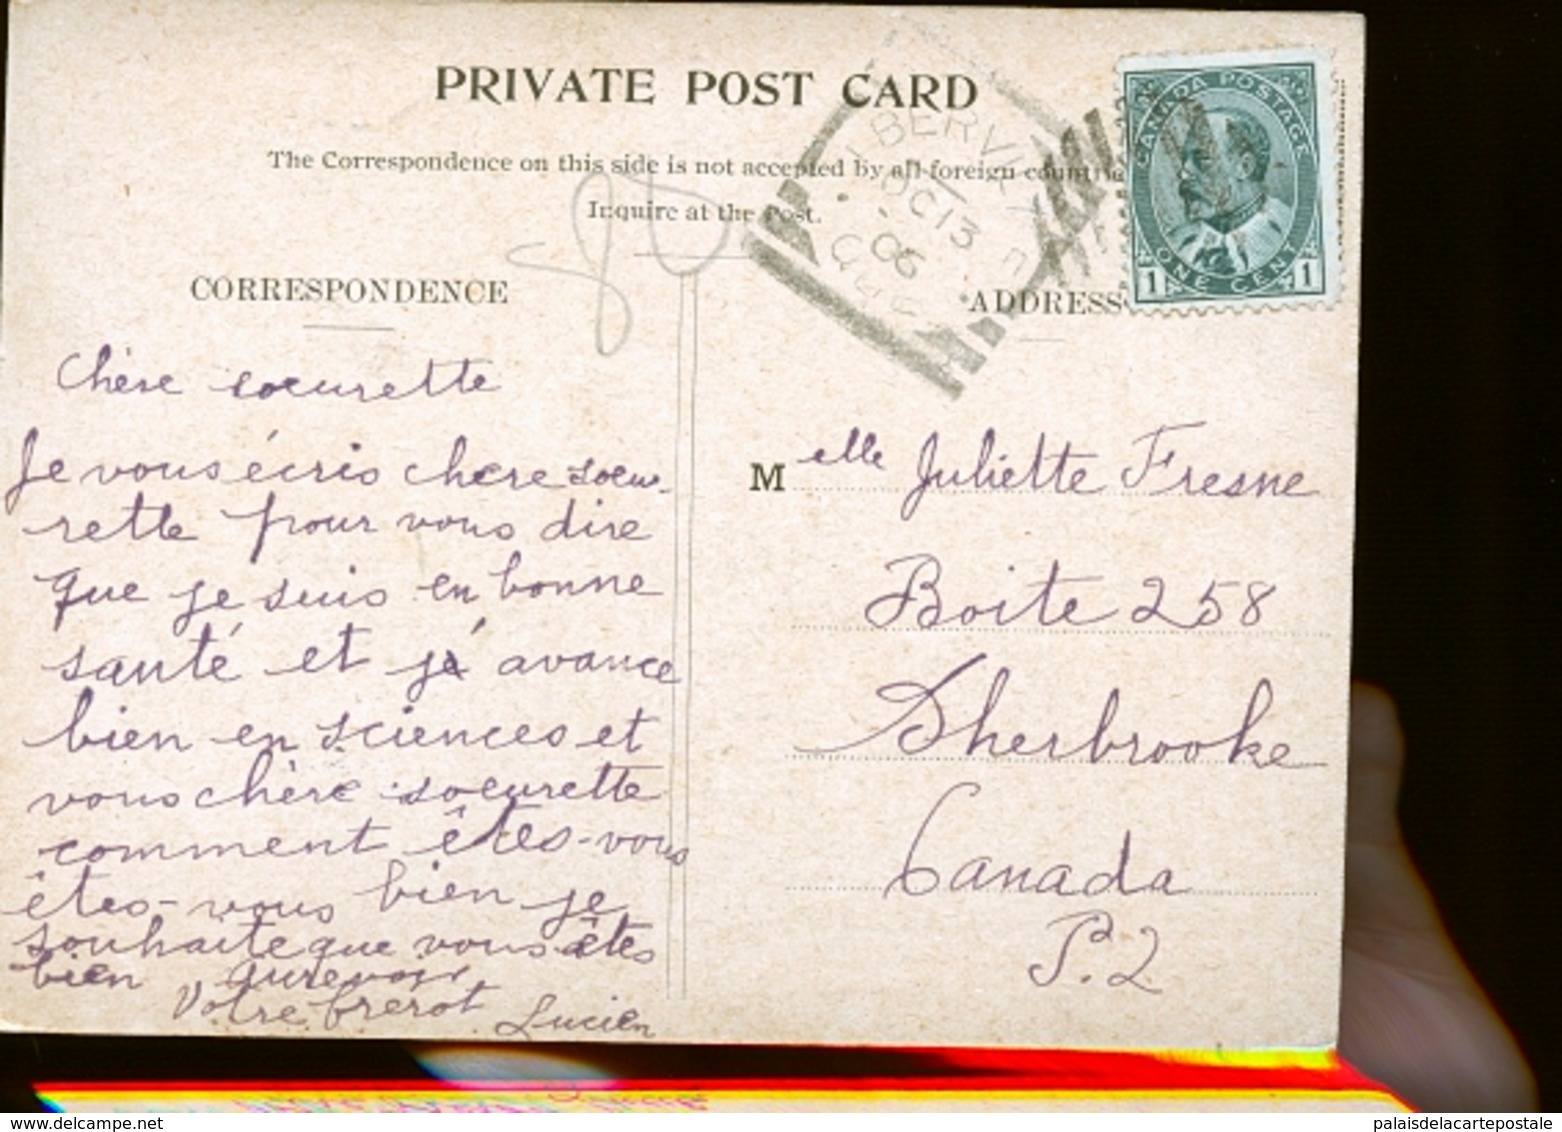 PRIVATE POST CARD
The Correspondence on this side is not accepted by all foreign countrie
Inquire at the Post.
CORRESPONDENCE
ADDRESS
CANADA POSTAGE
1 ONE CENT 1
IBERVI
OC 13
06
QUE
Chère soeurette
Je vous écris chere soeu-
rette pour vous dire
que je suis en bonne
santé et j'avance
bien en sciences et
vous chère soeurette
comment êtes-vous
êtes-vous bien je
souhaite que vous êtes
bien aurevoir
Votre frerot Lucien
Melle Juliette Fresne
Boite 258
Sherbrooke
Canada
P.2
delcampe.net
palaisdelacartepostale